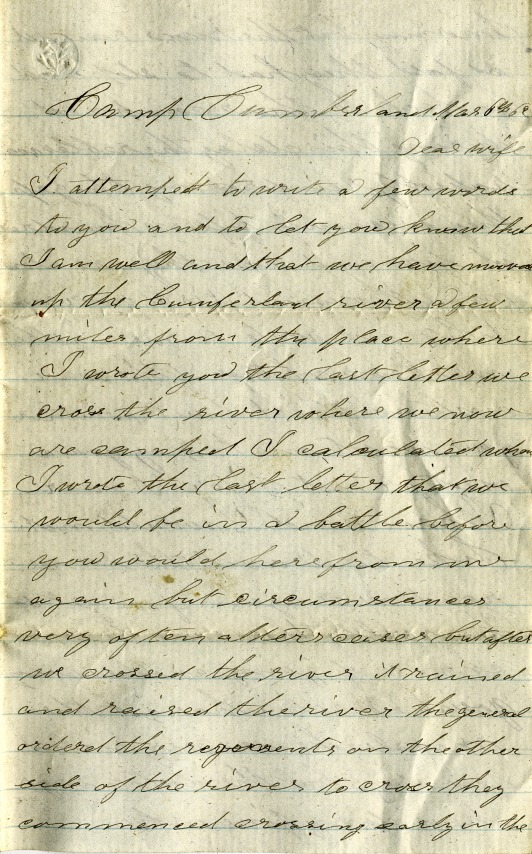 Camp Cumberland Mar 6th 62
Dear wife
I attempt to write a few words
to you and to let you know that
I am well and that we have moved
up the Cumferland river a few
miles from the place where
I wrote you the last letter we
cross the river where we now
are camped I calculated when
I wrote the last letter that we
would be in a battle before
you would here from me
again but circumstances
very often alters cases but after
we crossed the river it rained
and raised the river the general
ordered the regements on the other
side of the river to cross they
commenced crossing early in the